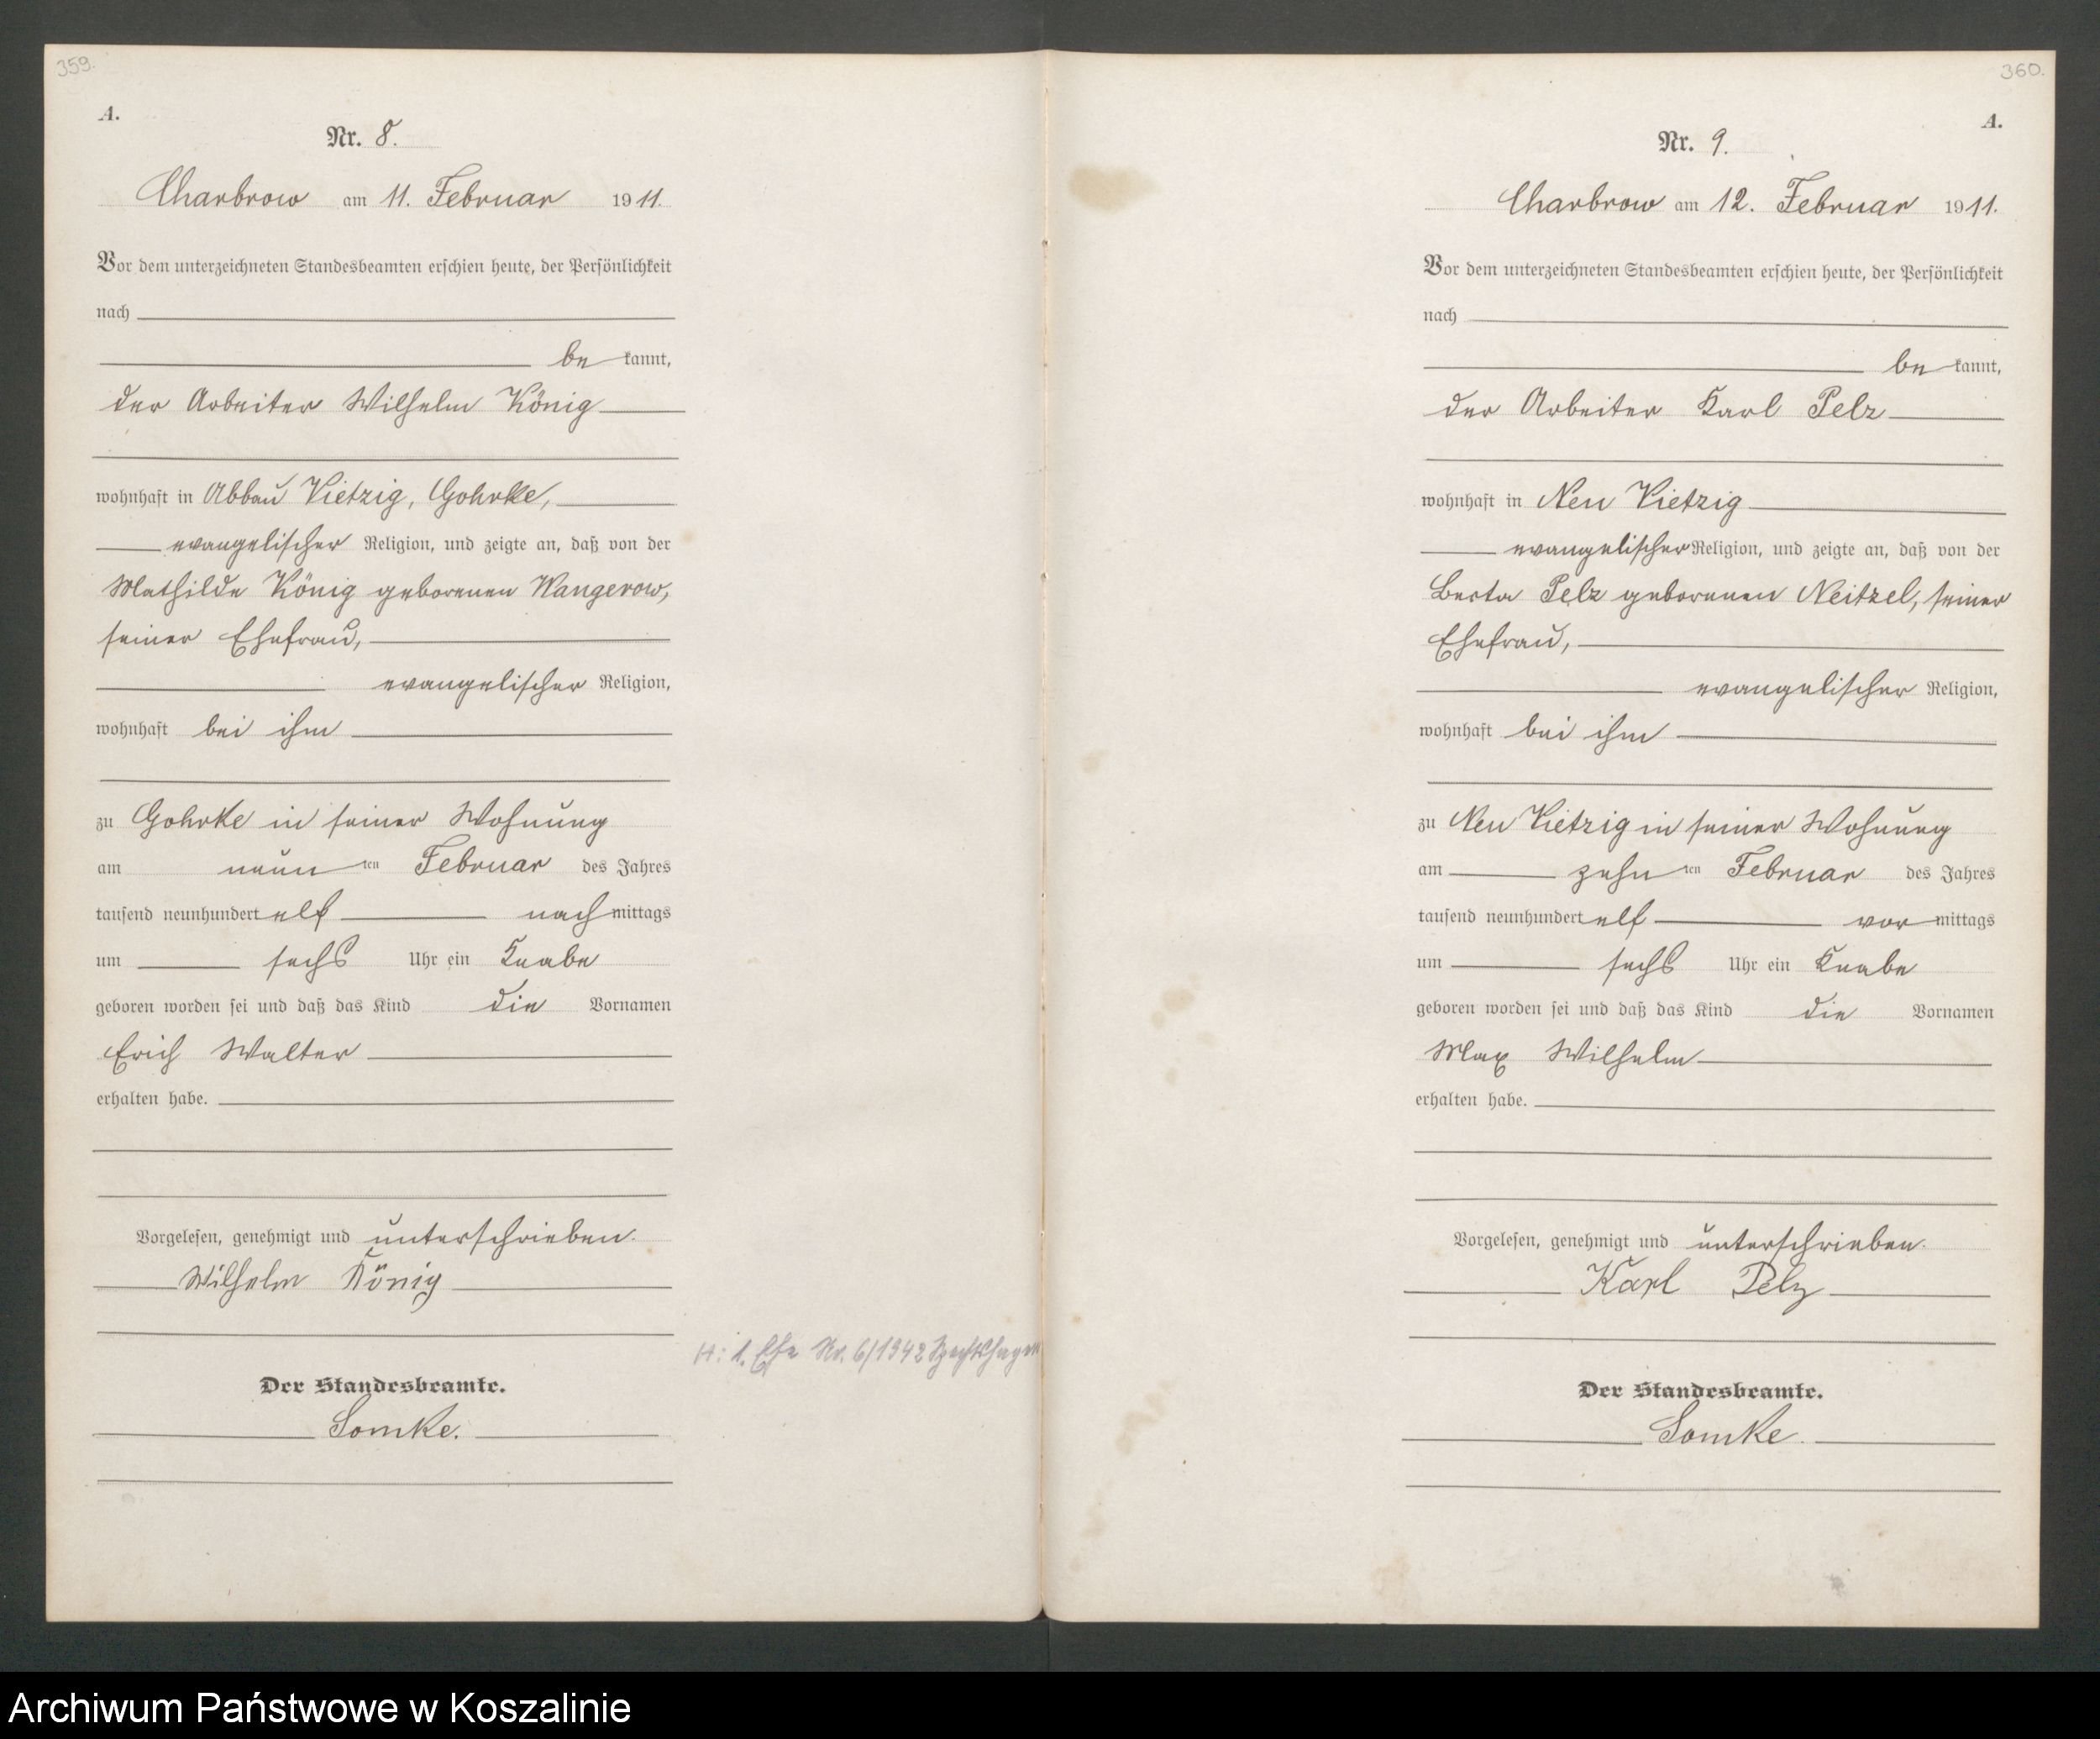 359.
A.
Nr. 8.
Charbrow am 11. Februar 1911.
Vor dem unterzeichneten Standesbeamten erschien heute, der Persönlichkeit
nach
be kannt,
der Arbeiter Wilhelm König
wohnhaft in Abbau Vietzig, Gohrke,
evangelischer Religion, und zeigte an, daß von der
Mathilde König geborenen Wangerow,
seiner Ehefrau,
evangelischer Religion,
wohnhaft bei ihm
zu Gohrke in seiner Wohnung
am neun ten Februar des Jahres
tausend neunhundert elf nach mittags
um sechs Uhr ein Knabe
geboren worden sei und daß das Kind die Vornamen
Erich Walter
erhalten habe.
Vorgelesen, genehmigt und unterschrieben.
Wilhelm König
H: 1. Ehe Nr. 6/1942
Der Standesbeamte.
Somke.
360.
A.
Nr. 9.
Charbrow am 12. Februar 1911.
Vor dem unterzeichneten Standesbeamten erschien heute, der Persönlichkeit
nach
be kannt,
der Arbeiter Karl Pelz
wohnhaft in Neu Vietzig
evangelischer Religion, und zeigte an, daß von der
Berta Pelz geborenen Neitzel, seiner
Ehefrau,
evangelischer Religion,
wohnhaft bei ihm
zu Neu Vietzig in seiner Wohnung
am zehn ten Februar des Jahres
tausend neunhundert elf vor mittags
um sechs Uhr ein Knabe
geboren worden sei und daß das Kind die Vornamen
Max Wilhelm
erhalten habe.
Vorgelesen, genehmigt und unterschrieben.
Karl Pelz
Der Standesbeamte.
Somke.
Archiwum Państwowe w Koszalinie